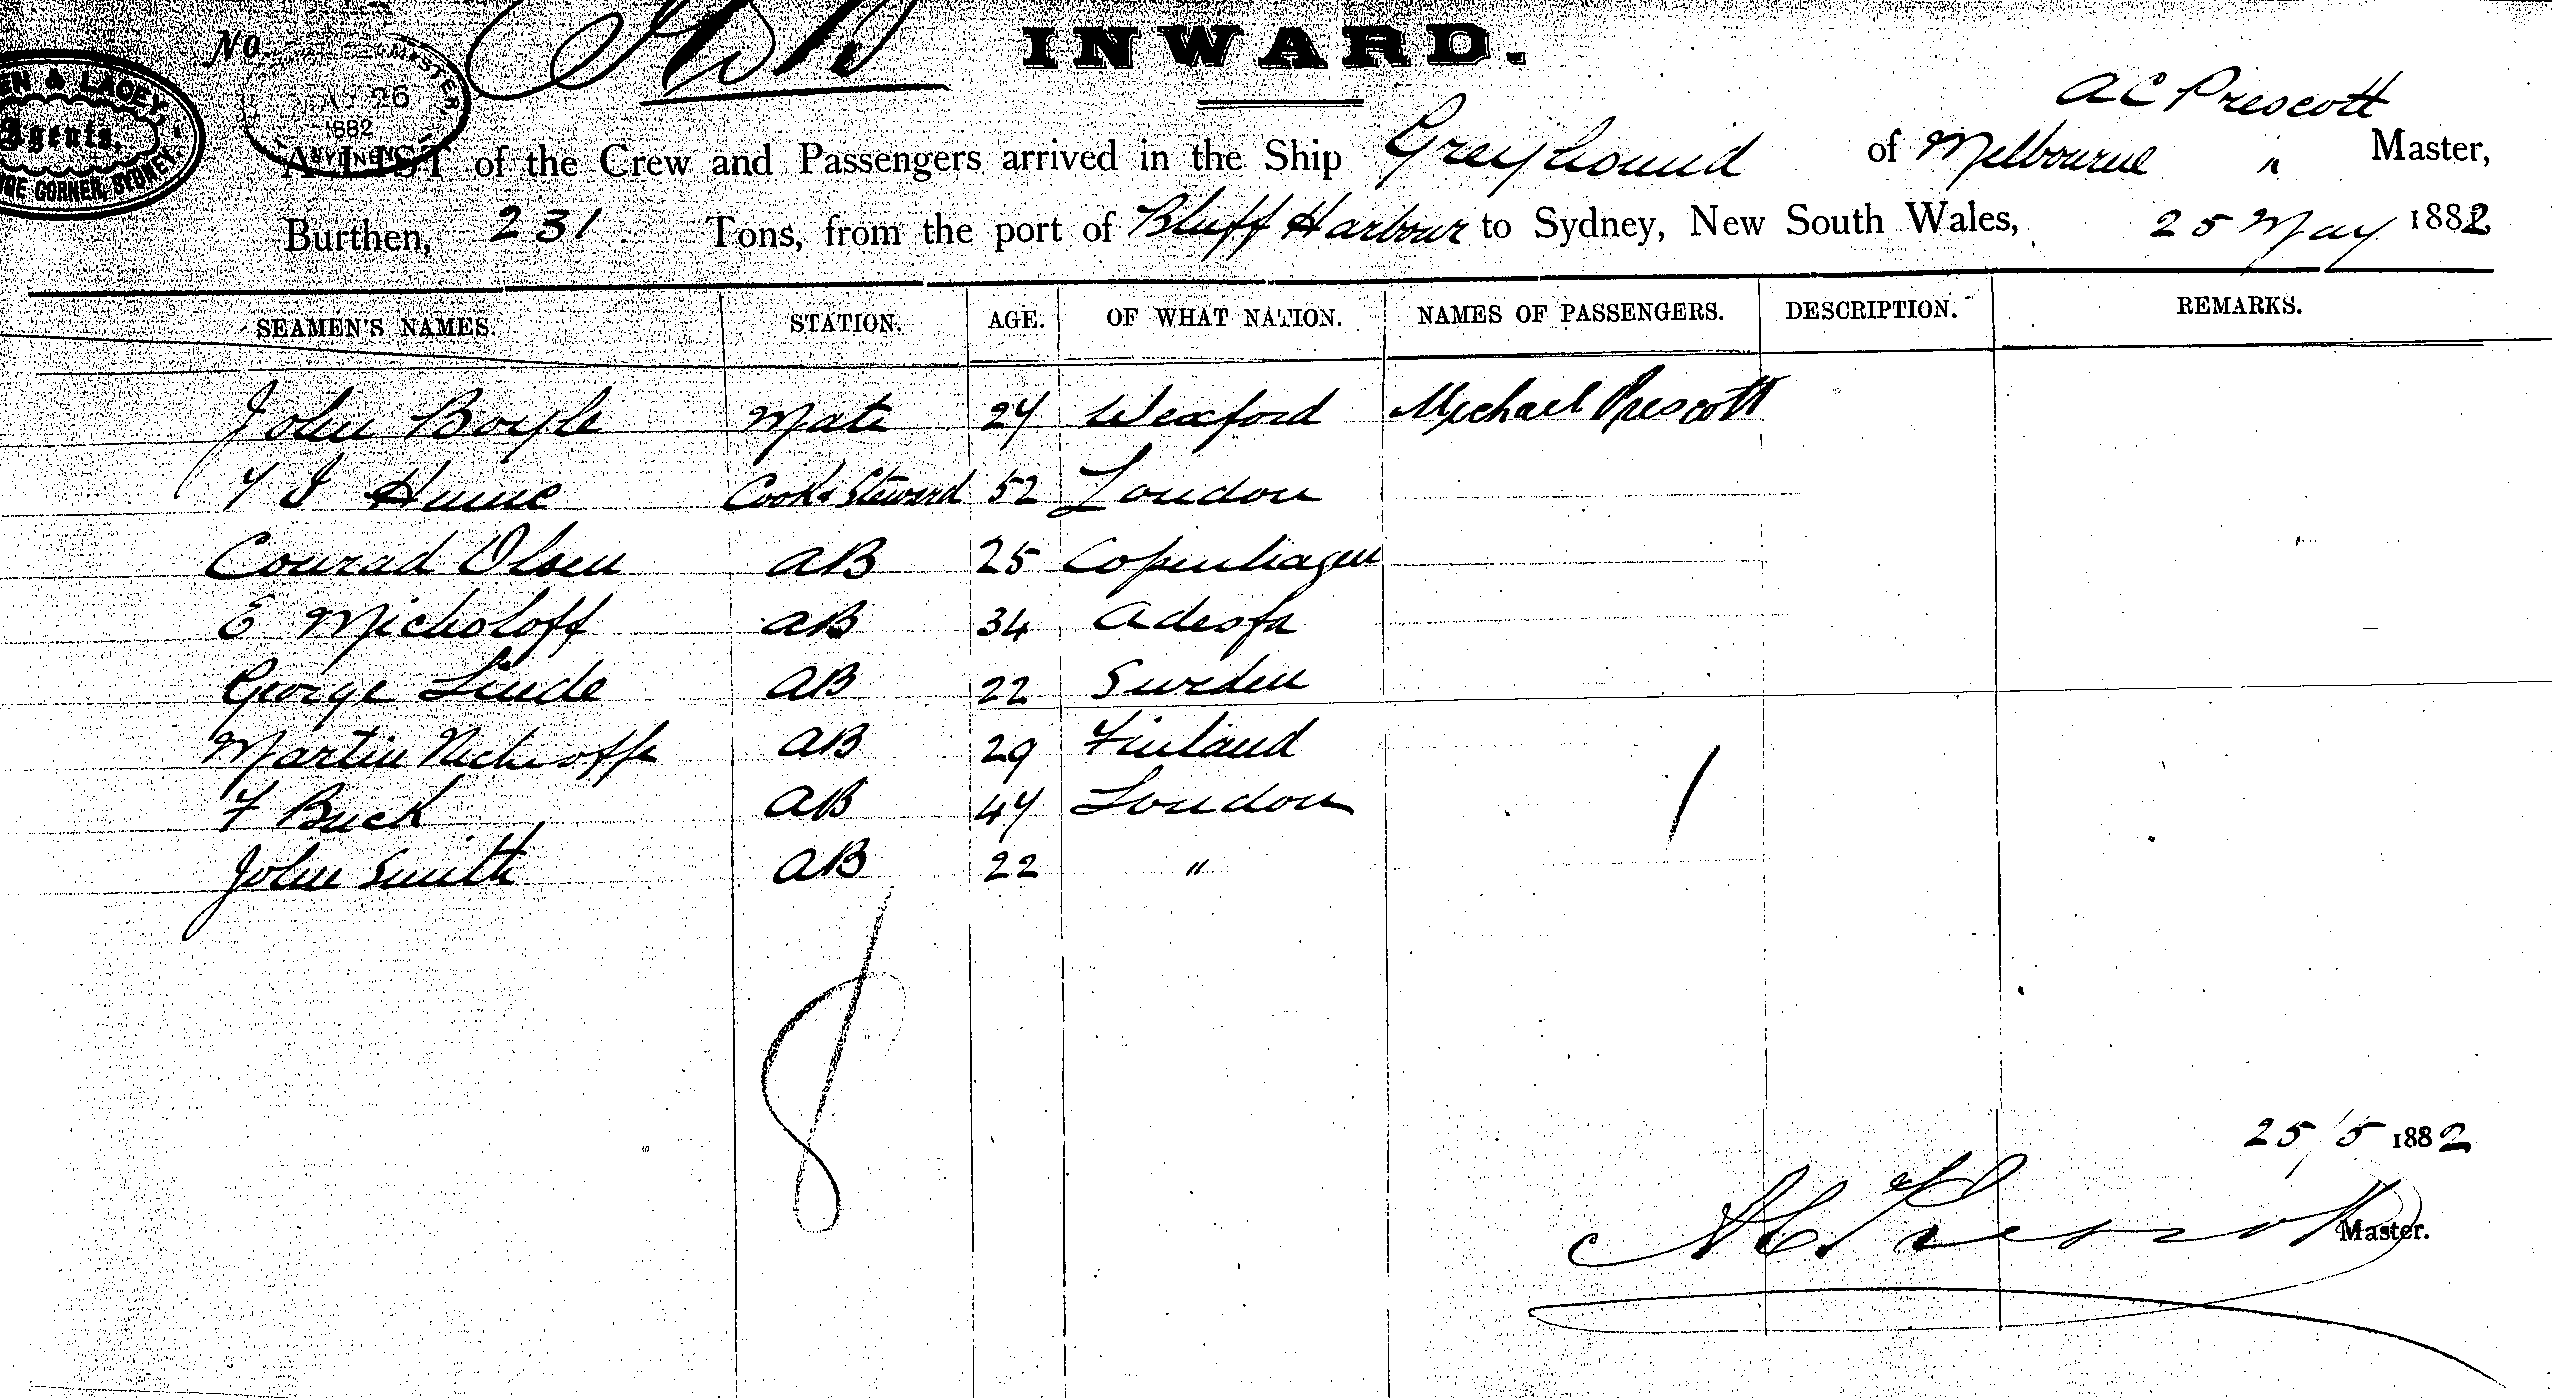 INWARD.
No.
EN & LACEY,
Agents,
CORNER, SYDNEY.
26
1882
A C Prescott
A LIST of the Crew and Passengers arrived in the Ship Greyhound of Melbourne " Master,
Burthen, 231 Tons, from the port of Bluff Harbour to Sydney, New South Wales, 25 May 1882
SEAMEN'S NAMES. STATION. AGE. OF WHAT NATION. NAMES OF PASSENGERS. DESCRIPTION. REMARKS.
John Boyle Mate 24 Wexford Michael Prescott
Hume Cook & Steward 52 London
Conrad Olsen AB 25 Copenhagen
E Micholoff AB 34 Adessa
George Linde AB 22 Sweden
Martin AB 29 Finland
F Buck AB 44 London
John Smith AB 22 "
1
8
25/5 1882
A C Prescott Master.